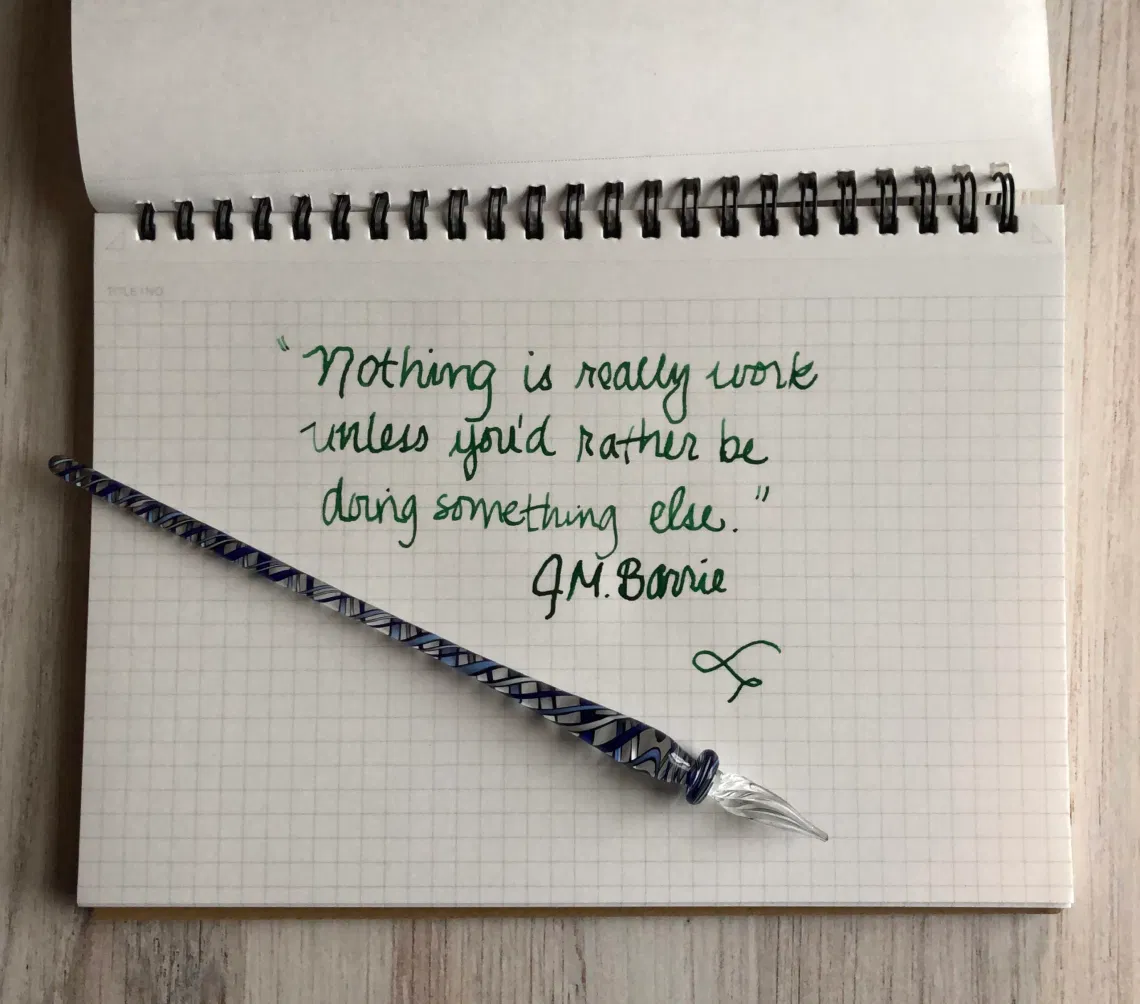 "Nothing is really work
unless you'd rather be
doing something else."
J.M. Barrie